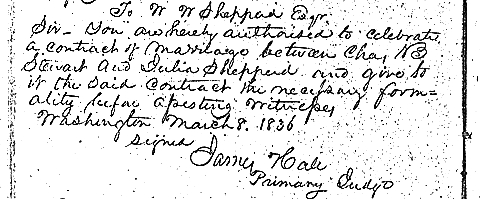 To W W Sheppard Esqr.
Sir - You are hereby authorised to celebrate
a contract of marriage between Chas B
Stewart and Julia Shepperd and give to
it the said contract the necessary form=
ality before apesting witnesses
Washington March 8. 1836
Signed
James Hall
Primary Judge